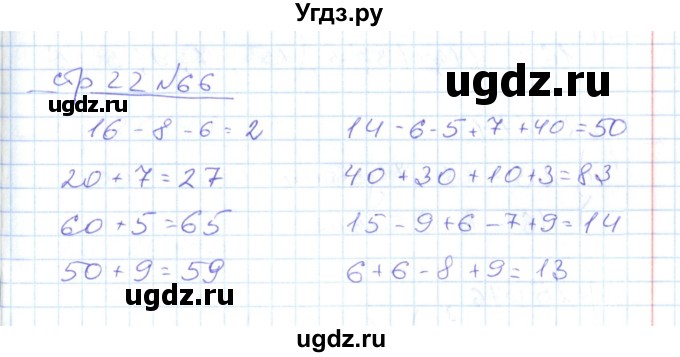 Угдз.ру
стр 22 №66
ugdz.ru
ugdz.ru
16 - 8 - 6 = 2
14 - 6 - 5 + 7 + 40 = 50
20 + 7 = 27
40 + 30 + 10 + 3 = 83
60 + 5 = 65
15 - 9 + 6 - 7 + 9 = 14
50 + 9 = 59
6 + 6 - 8 + 9 = 13
ugdz.ru
ugdz.ru
ugdz.ru